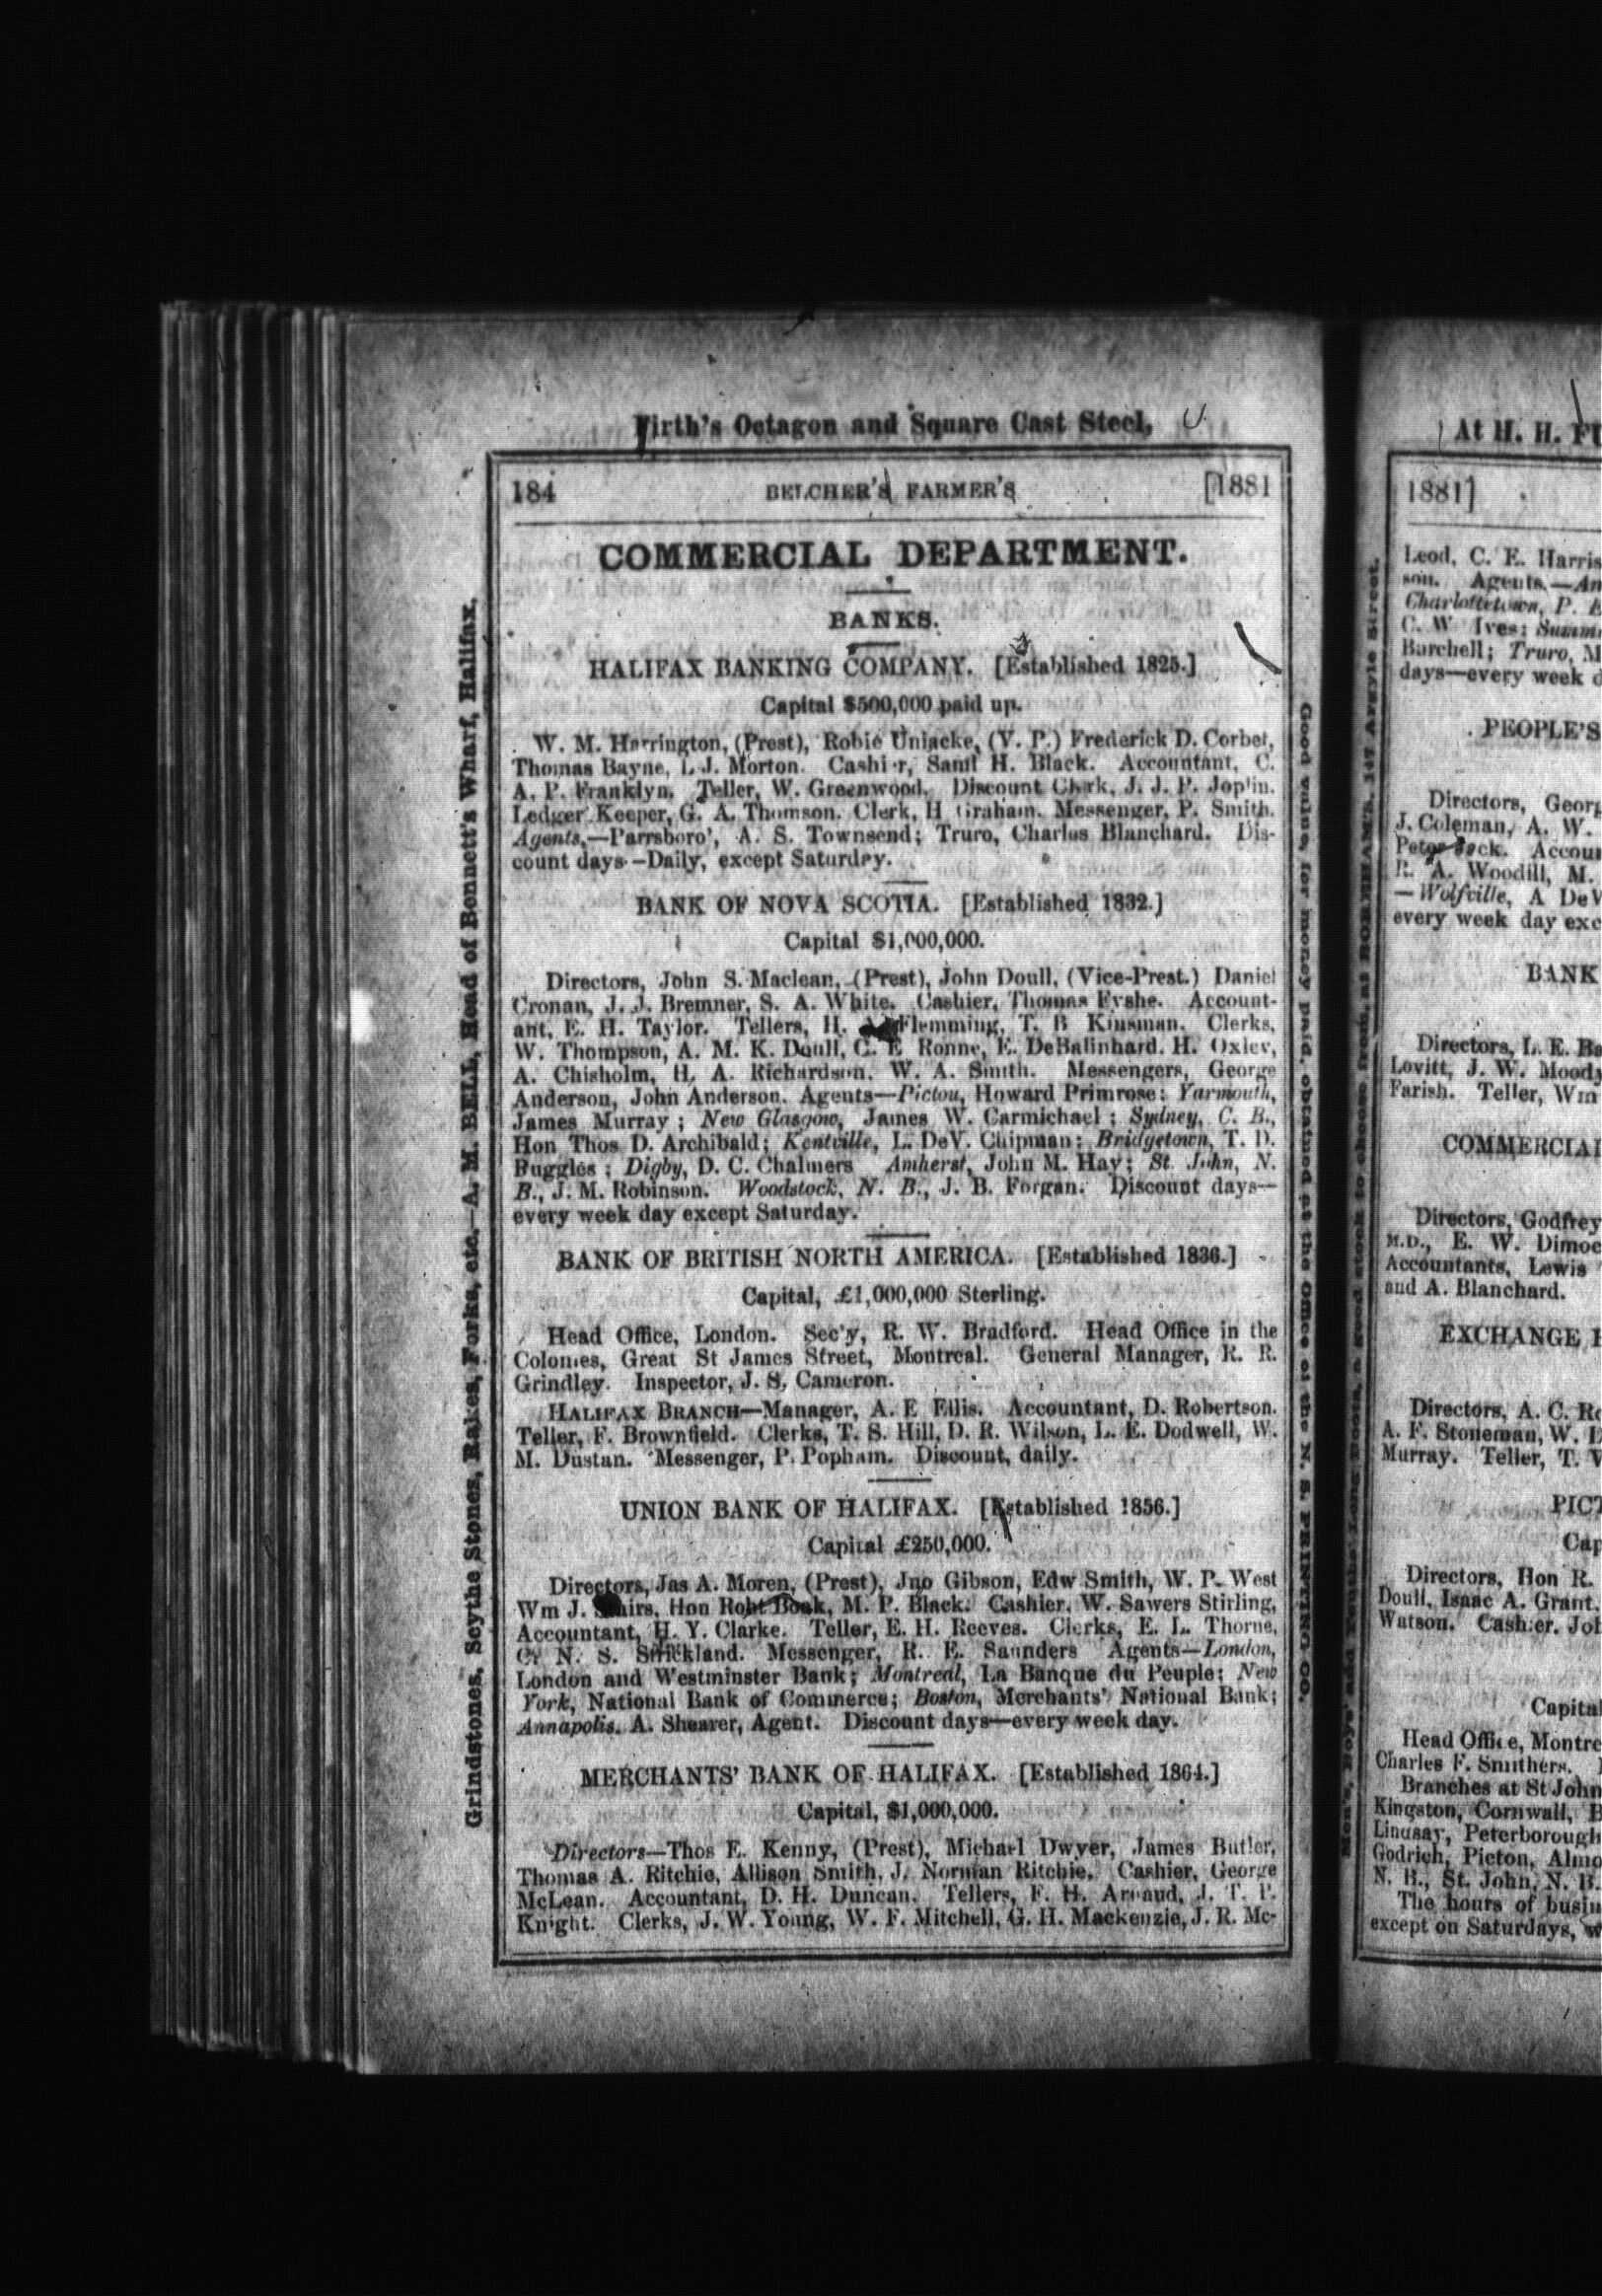 Firth's Octagon and Square Cast Steel,
184 BELCHER'S FARMER'S [1881
COMMERCIAL DEPARTMENT.
BANKS.
HALIFAX BANKING COMPANY. [Established 1825.]
Capital $500,000 paid up.
W. M. Harrington, (Prest), Robie Uniacke, (V. P.) Frederick D. Corbet,
Thomas Bayne, L. J. Morton. Cashier, Saml H. Black. Accountant, C.
A. P. Franklyn. Teller, W. Greenwood. Discount Clerk, J. J. P. Joplin.
Ledger Keeper, G. A. Thomson. Clerk, H Graham. Messenger, P. Smith.
Agents,—Parrsboro', A. S. Townsend; Truro, Charles Blanchard. Dis-
count days—Daily, except Saturday.
BANK OF NOVA SCOTIA. [Established 1832.]
Capital $1,000,000.
Directors, John S. Maclean, (Prest), John Doull, (Vice-Prest.) Daniel
Cronan, J. J. Bremner, S. A. White. Cashier, Thomas Fyshe. Account-
ant, E. H. Taylor. Tellers, H. Flemming, T. B Kinsman. Clerks,
W. Thompson, A. M. K. Doull, C. E Ronne, E. DeBalinhard. H. Oxley,
A. Chisholm, H. A. Richardson, W. A. Smith. Messengers, George
Anderson, John Anderson. Agents—Pictou, Howard Primrose; Yarmouth,
James Murray ; New Glasgow, James W. Carmichael ; Sydney, C. B.,
Hon Thos D. Archibald; Kentville, L. DeV. Chipman; Bridgetown, T. D.
Ruggles ; Digby, D. C. Chalmers Amherst, John M. Hay; St. John, N.
B., J. M. Robinson. Woodstock, N. B., J. B. Forgan. Discount days—
every week day except Saturday.
BANK OF BRITISH NORTH AMERICA. [Established 1836.]
Capital, £1,000,000 Sterling.
Head Office, London. Sec'y, R. W. Bradford. Head Office in the
Colonies, Great St James Street, Montreal. General Manager, R. R.
Grindley. Inspector, J. S. Cameron.
HALIFAX BRANCH—Manager, A. E Ellis. Accountant, D. Robertson.
Teller, F. Brownfield. Clerks, T. S. Hill, D. R. Wilson, L. E. Dodwell, W.
M. Dustan. Messenger, P. Popham. Discount, daily.
UNION BANK OF HALIFAX. [Established 1856.]
Capital £250,000.
Directors, Jas A. Moren, (Prest), Jno Gibson, Edw Smith, W. P. West
Wm J. Stairs, Hon Robt Boak, M. P. Black. Cashier, W. Sawers Stirling,
Accountant, H. Y. Clarke. Teller, E. H. Reeves. Clerks, E. L. Thorne,
C. N. S. Strickland. Messenger, R. E. Saunders Agents—London,
London and Westminster Bank; Montreal, La Banque du Peuple; New
York, National Bank of Commerce; Boston, Merchants' National Bank;
Annapolis. A. Shearer, Agent. Discount days—every week day.
MERCHANTS' BANK OF HALIFAX. [Established 1864.]
Capital, $1,000,000.
Directors—Thos E. Kenny, (Prest), Michael Dwyer, James Butler,
Thomas A. Ritchie, Allison Smith, J. Norman Ritchie. Cashier, George
McLean. Accountant, D. H. Duncan. Tellers, F. H. Arnaud, J. T. P.
Knight. Clerks, J. W. Young, W. F. Mitchell, G. H. Mackenzie, J. R. Mc-
Grindstones, Scythe Stones, Rakes, Forks, etc.—A. M. BELL, Head of Bennett's Wharf, Halifax.
Good value, for money paid, obtained at the Office of the N. S. PRINTING CO.
At H. H.
1881]
Leod, C. E. Harris
son. Agents.—
Charlottetown, P.
C. W Ives;
Burchell; Truro, M
days—every week
PEOPLE'S
Directors,
J. Coleman, A. W.
Peter Jack.
R. A. Woodill, M.
—Wolfville, A
every week day
BANK
Directors, L. E.
Lovitt, J. W. Moody
Farish. Teller, Wm
COMMERCIAL
Directors, Godfrey
M.D., E. W.
Accountants, Lewis
and A. Blanchard.
EXCHANGE
Directors, A. C.
A. F. Stoneman, W.
Murray. Teller, T.
Directors, Hon R.
Doull, Isaac A. Grant.
Watson. Cashier.
Capital
Head Office,
Charles F. Smithers.
Branches at St John
Kingston, Cornwall,
Lindsay, Peterborough
Godrich, Picton,
N. B., St. John, N. B.
The hours of
except on Saturdays,
Men's, Boys' and Youths' Long Boots, a good stock to choose from, at BOREHAM'S, 147 Argyle Street.